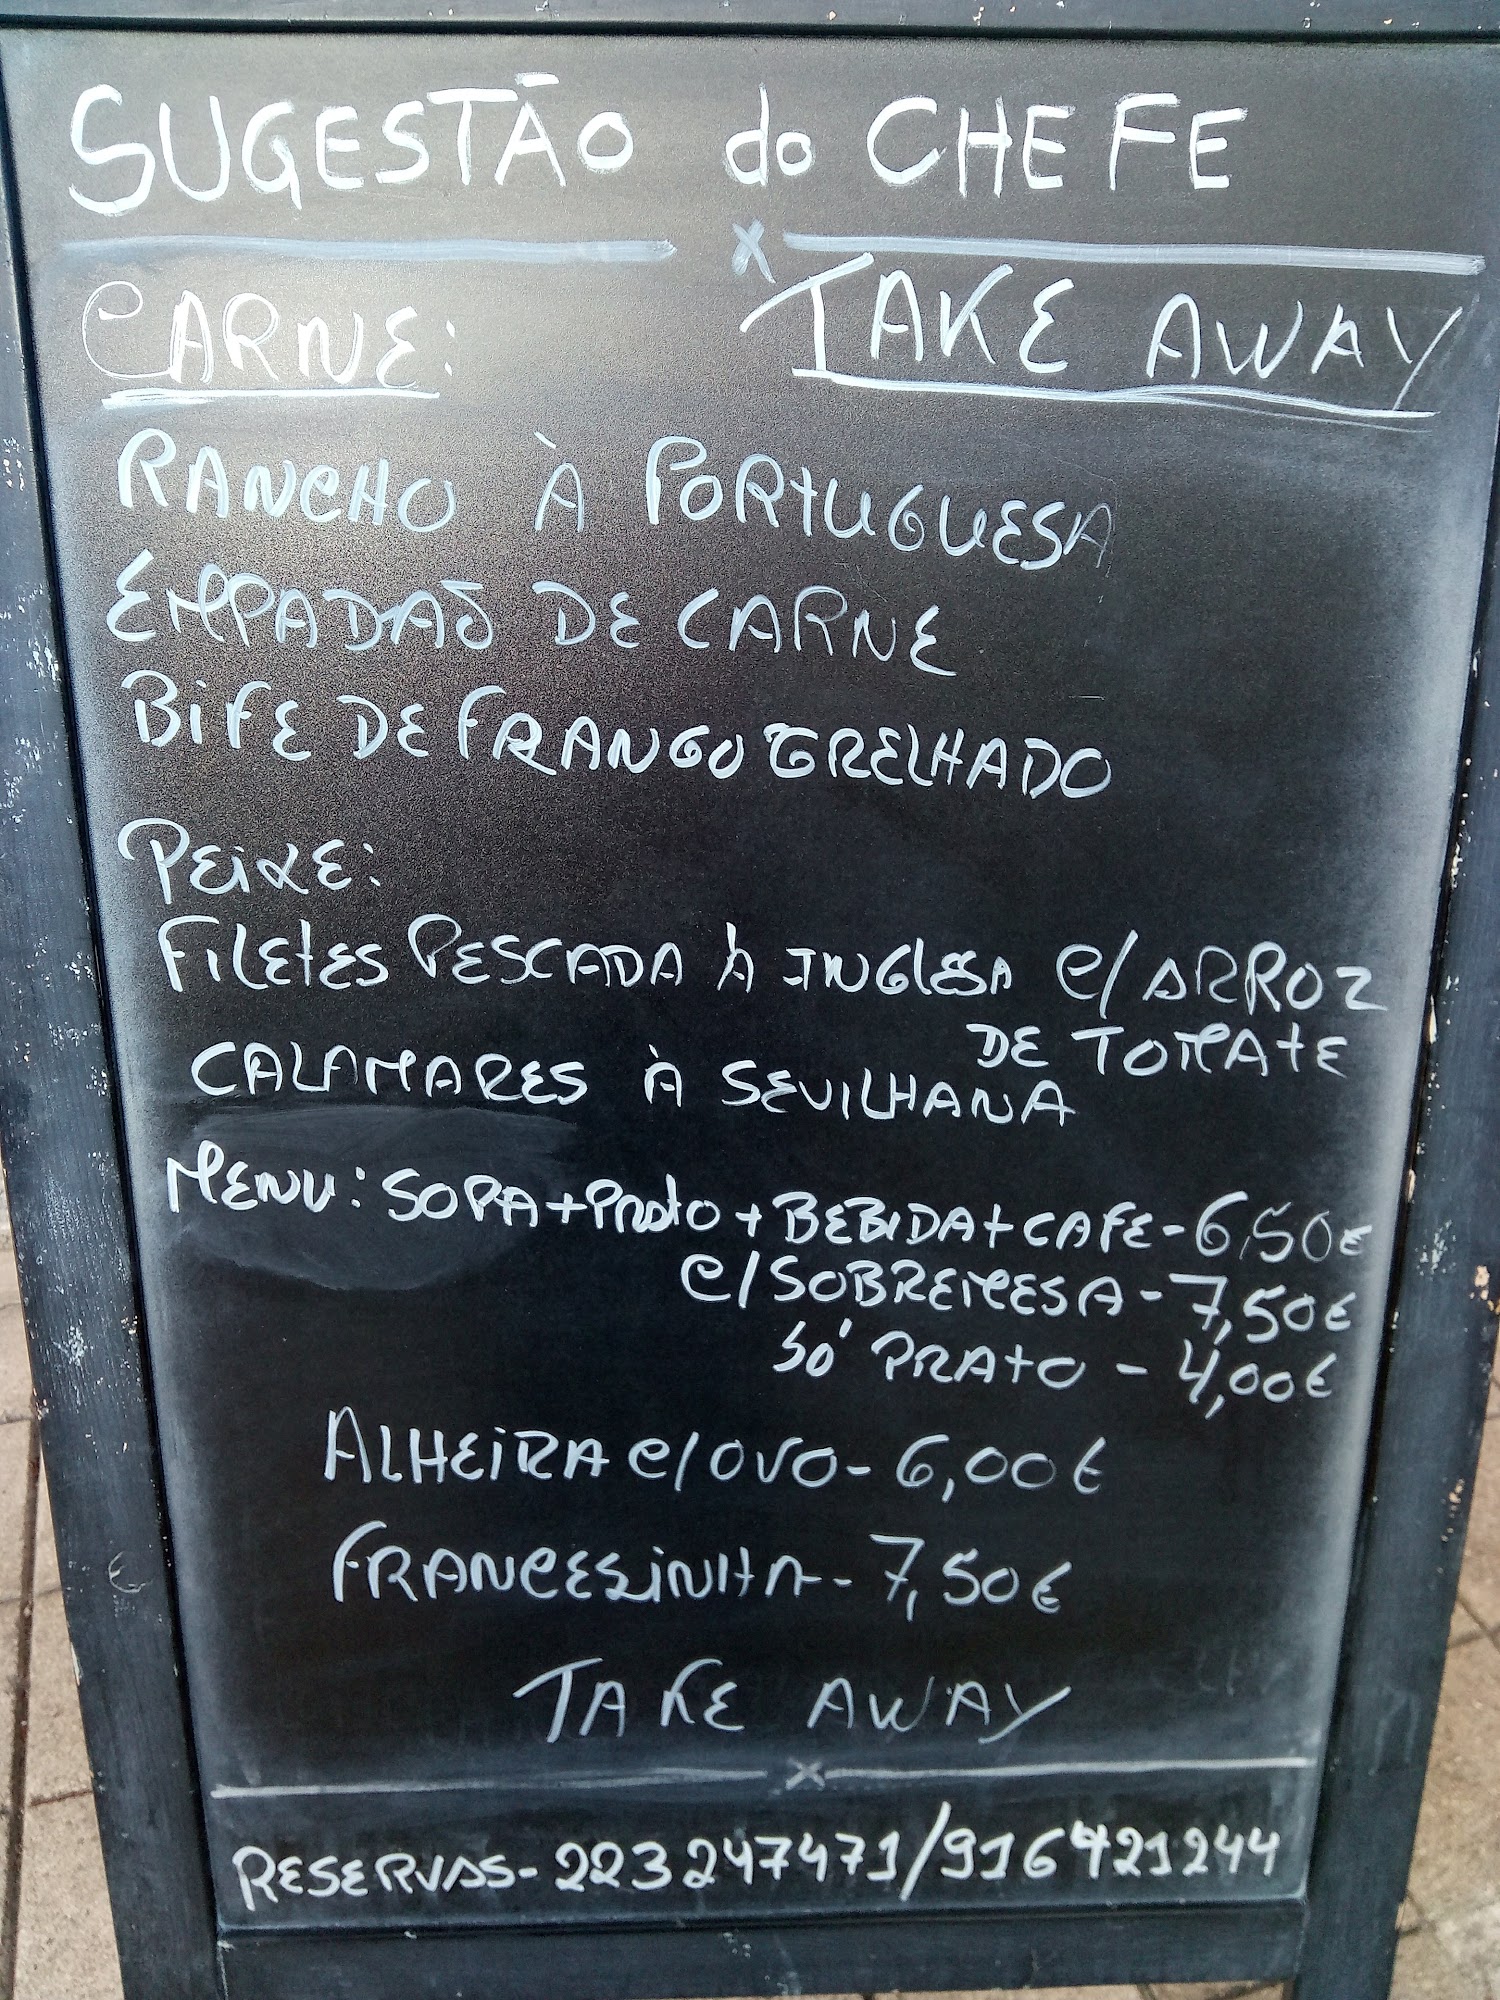 SUGESTÃO do CHEFE
x
CARNE: TAKE AWAY
RANCHO À PORTUGUESA
EMPADÃO DE CARNE
BIFE DE FRANGO GRELHADO
PEIXE:
FILETES PESCADA À INGLESA C/ARROZ
DE TOMATE
CALAMARES À SEVILHANA
MENU: SOPA+PRATO+BEBIDA+CAFE-6,50€
C/SOBREMESA-7,50€
SÓ PRATO-4,00€
ALHEIRA C/OVO-6,00€
FRANCESINHA-7,50€
TAKE AWAY
x
RESERVAS-223247471/916421244